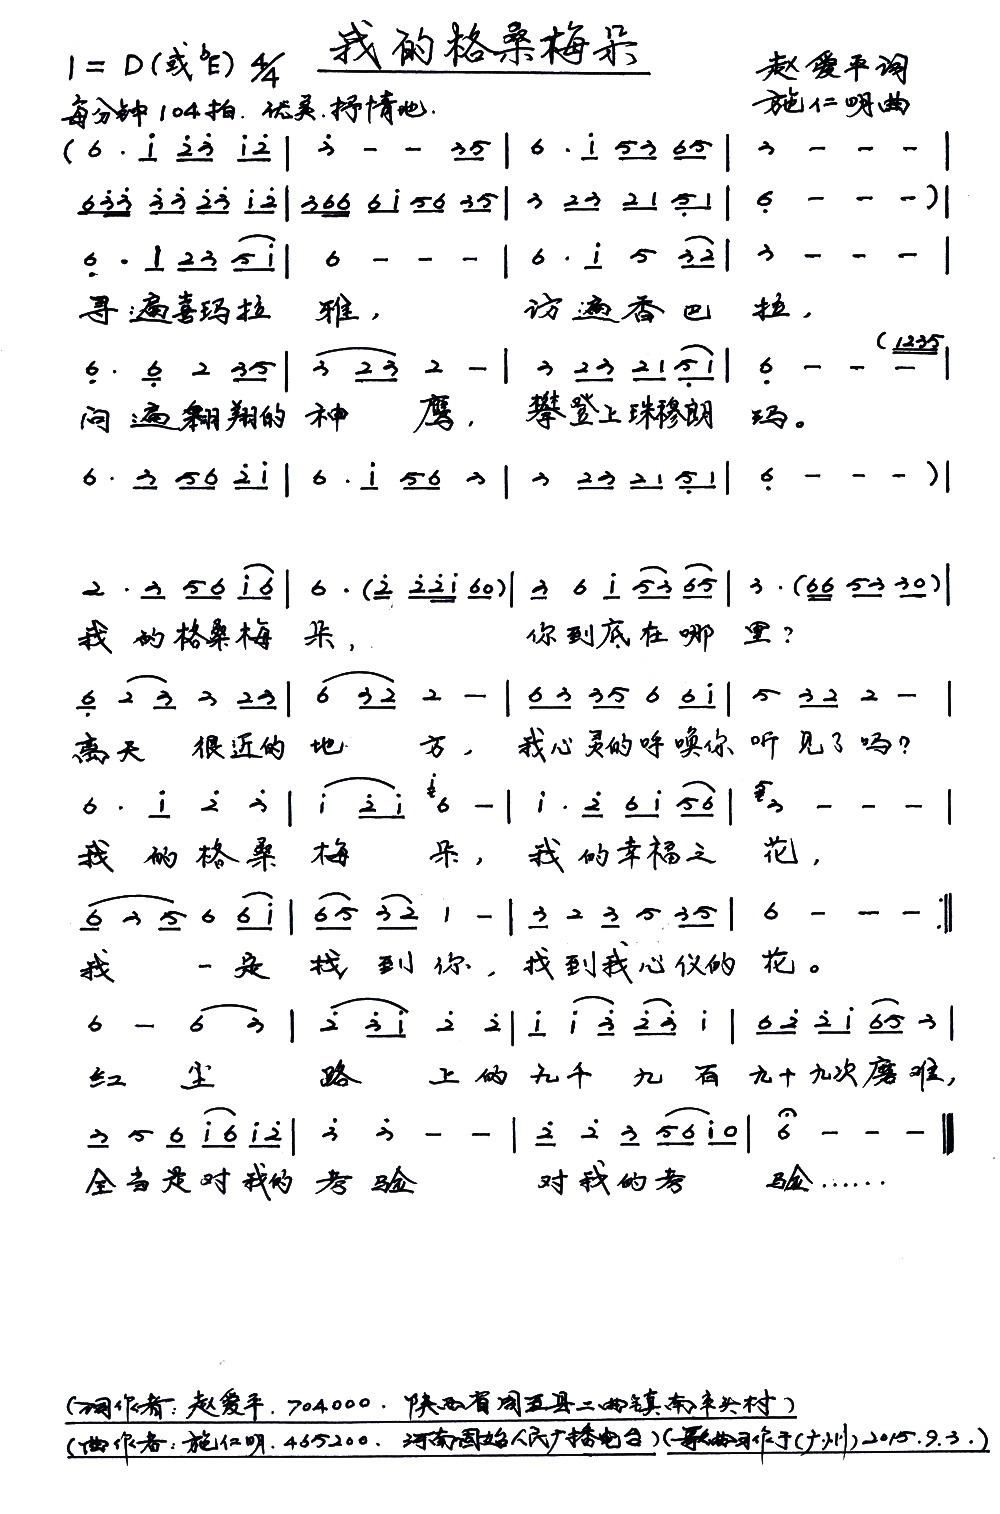 我的格桑梅朵
1=D(或ᵇE) 4/4
赵爱平词
每分钟104拍.优美.抒情地.
施仁明曲
(6·i 23 i2 | 3 - - 35 | 6·i 53 65 | 3 - - - |
633 33 23 i2 | 366 6i 56 35 | 3 23 21 51 | 6 - - - ) |
6·1 23 5i | 6 - - - | 6·i 5 32 | 3 - - - |
寻遍喜玛拉雅, 访遍香巴拉,
(1235
6·6 2 35 | 3 23 2 - | 3 23 21 51 | 6 - - - |
问遍翱翔的神鹰, 攀登上珠穆朗玛。
6·3 56 2i | 6·i 56 3 | 3 23 21 51 | 6 - - - ) |
2·3 56 i6 | 6·(2 22i 60) | 3 6 i 53 65 | 3·(66 53 30) |
我的格桑梅朵, 你到底在哪里?
6 2 3 3 23 | 6 32 2 - | 63 35 6 6i | 5 32 2 - |
离天很近的地方, 我心灵的呼唤你听见了吗?
6·i 2 3 | i 2i 6 - | i·2 6i 56 | 3 - - - |
我的格桑梅朵, 我的幸福之花,
6 3 5 6 6i | 65 32 1 - | 3 2 3 5 35 | 6 - - - :||
我一定找到你, 找到我心仪的花。
6 - 6 3 | 2 3i 2 2 | i i 3 23 i | 62 2i 65 3 |
红尘路上的九千九百九十九次磨难,
3 5 6 i6 i2 | 3 3 - - | 2 2 3 56 i0 | 6 - - - ||
全当是对我的考验 对我的考验……
(词作者:赵爱平.704000.陕西省周至县二曲镇南辛头村)
(曲作者:施仁明.465200.河南固始人民广播电台)(歌曲习作于(广州)2015.9.3.)